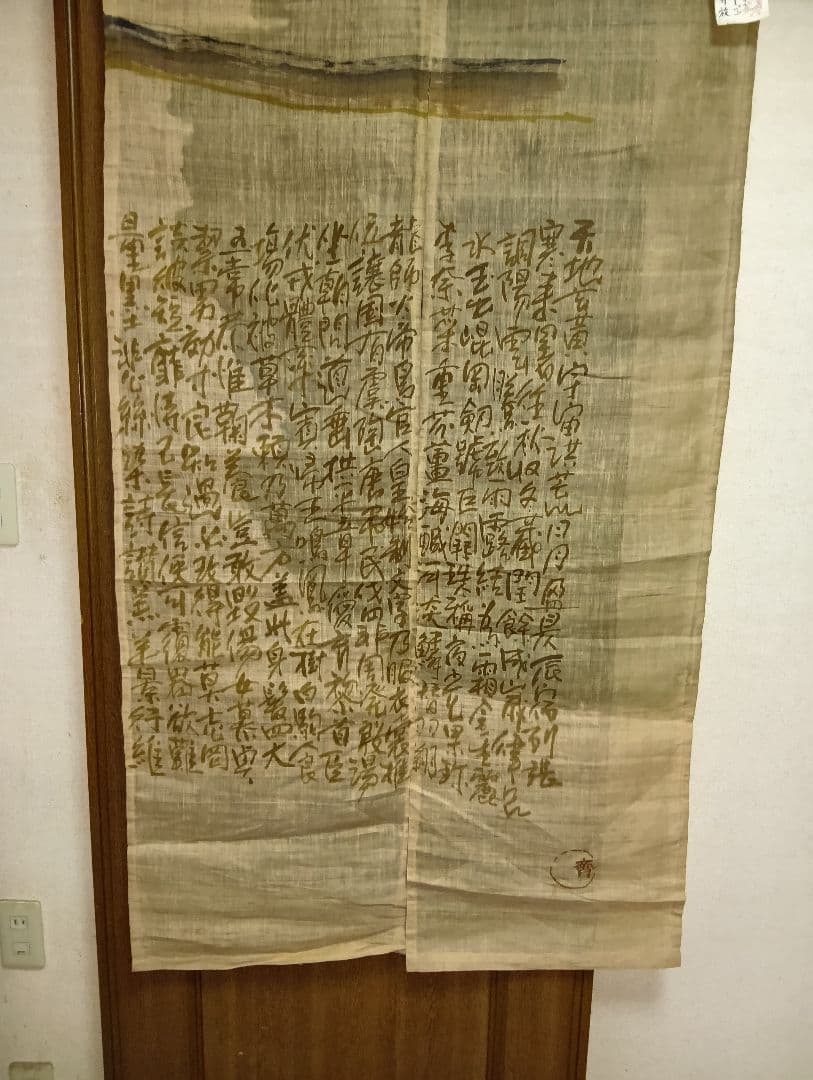 天地玄黄宇宙洪荒日月盈昃辰宿列張
寒来暑往秋收冬蔵閏餘成歳律呂
調陽雲騰致雨露結為霜金生麗
水玉出崐岡劔號巨闕珠稱夜光果珍
李柰菜重芥薑海鹹河淡鱗潜羽翔
龍師火帝鳥官人皇始制文字乃服衣裳推
位讓国有虞陶唐弔民伐罪周発殷湯
坐朝問道垂拱平章愛育黎首臣
伏戎體率賓帰王鳴鳳在樹白駒食
場化被草木頼乃萬方盖此身髪四大
五常恭惟鞠養豈敢毀傷女慕貞
潔男効才良知過必改得能莫忘罔
談彼短靡恃己長信使可覆器欲難
量墨悲絲染詩讃羔羊景行維
齊